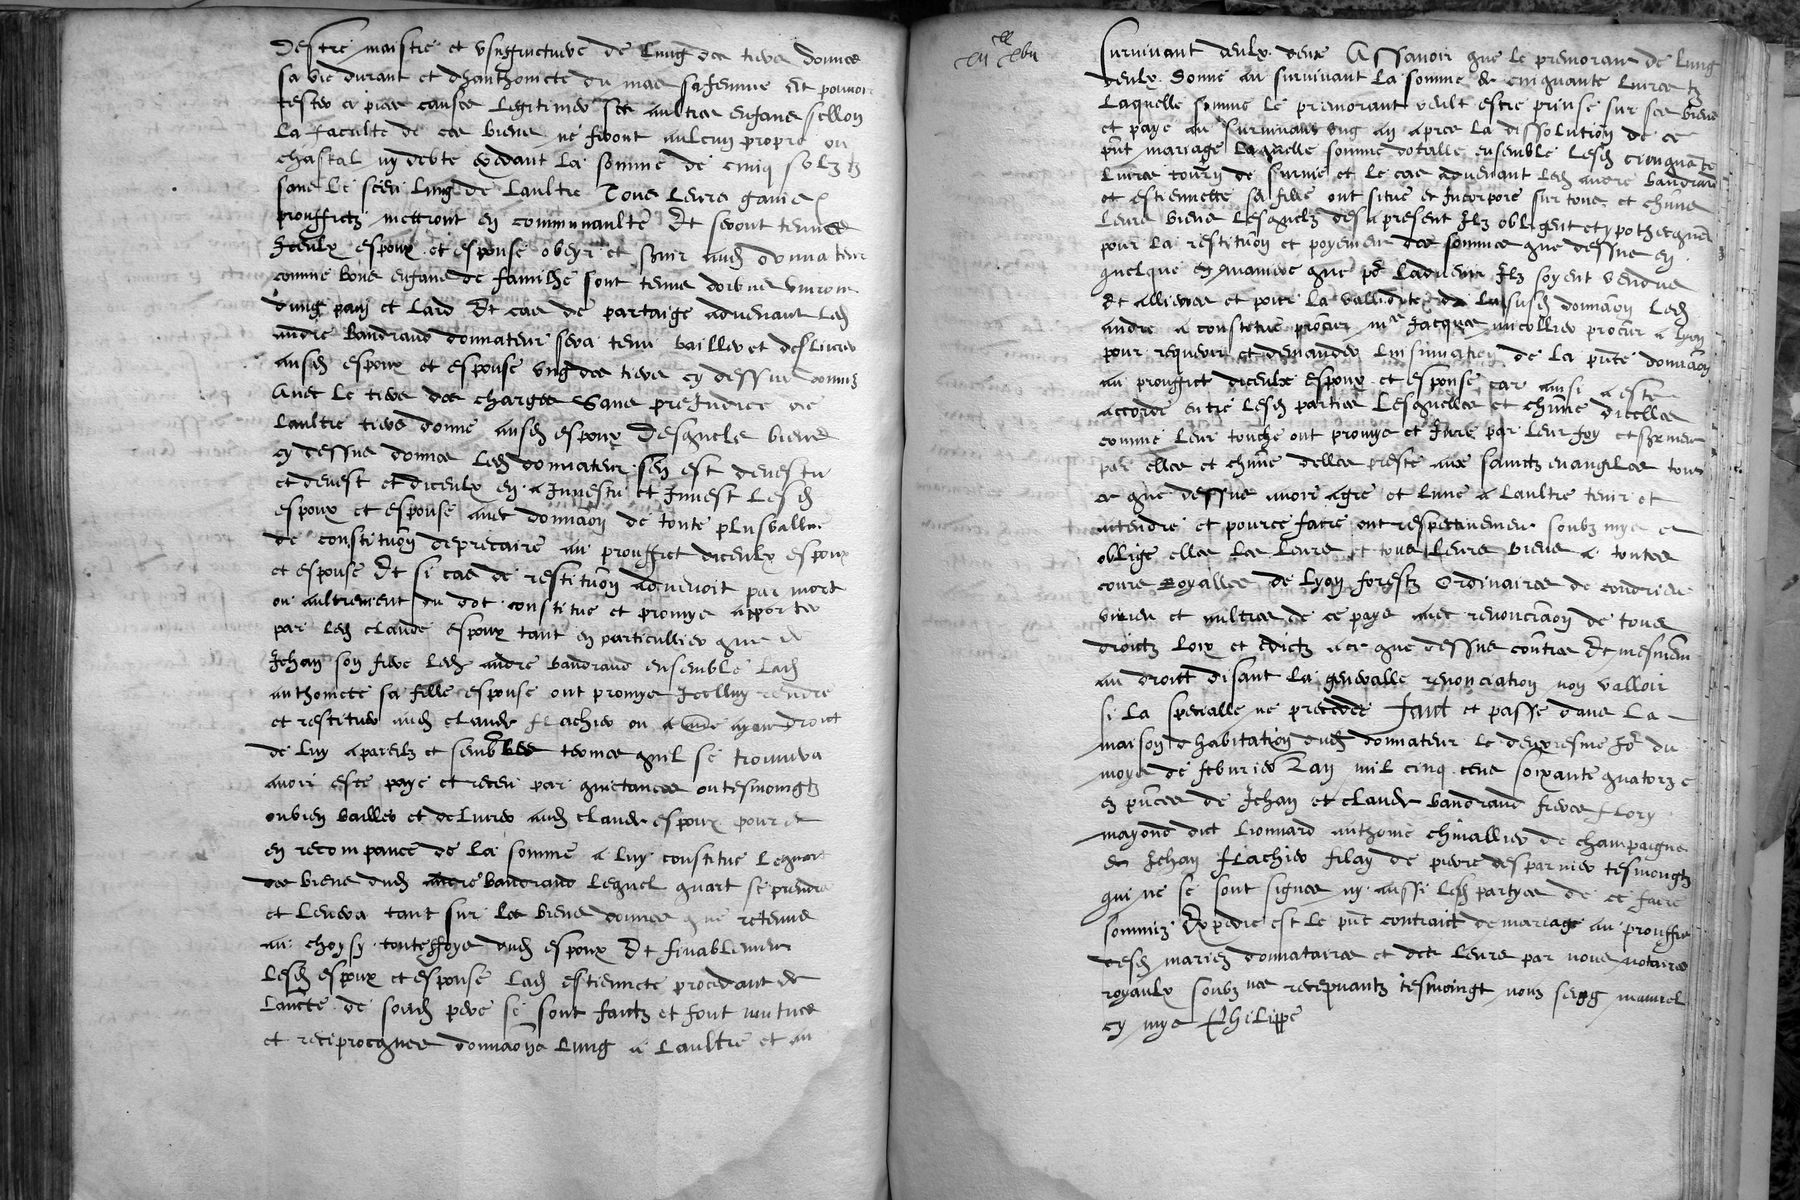 destre maistre et usuffructueur de lung des tiers donnes
sa vie durant et dhanthoinete du mas sa femme et pouvoir
tester a pies causes legitimer ses aultres enfans sellon
la faculte de ses biens ne feront aulcung propre ou
chastal ny debte exedant la somme de cinq solz tz
sans le sceu lung de laultre Tous leurs gaings
prouffictz mettront en communaulte Et seront tenus
Iceulx espoux et espouse obeyr et servir aud donnateur
comme bons enfans de famille sont tenus doibvent vivront
dung pain et lard Et cas de partaige advenant led
andre baudrand donnateur sera tenu bailler et deslivrer
ausd espoux et espouse ung des tiers cy dessus donnez
avec le tiers des charges Sans preiudice de
laultre tiers donne ausd espoux Desquels biens
cy dessus donnes led donnateur sen est devestu
et devest et diceulx en a Investu et Invest lesd
espoux et espouse avec donnaon de toute plusvallue
de constituon de precaire au prouffict diceulx espoux
et espouse Et si cas de restituon advenoit par mort
ou aultrement du dot constitue et promys apporter
par led claude espoux tant en particullier que de
Jehan son frere led andre baudrand ensemble lad
anthoinete sa fille espouse ont promys Icelluy rendre
et restituer aud claude flachier ou a ayans droict
de luy a pareilz et semblables termes quil se trouvera
avoir este paye et receu par quictances ou tesmoingtz
ou bien bailler et delivrer aud claude espoux pour et
en recompance de la somme a luy constitue le quart
des biens dud andre baudrand lequel quart se prendra
et levera tant sur les biens donnes que retenus
au choys toutesfoys dud espoux Et finablement
lesd espoux et espouse lad estiennete procedant de
laucte de sond pere se sont faictz et font mutues
et reciprocques donnaons lung a laultre et au
survivant deulx deux Assavoir que le premorant de lung
deulx donne au survivant la somme de cinquante livres tz
laquelle somme le premorant veult estre prinse sur ses biens
et paye au survivant ung an apres la dissolution de ce
pnt mariage laquelle somme dotalle ensemble lesd cinquante
livres tourn de survie et le cas advenant led andre baudrand
et estiennette sa fille ont situe et Incorpore sur tous et chuns
leurs biens lesquelz des a present Ilz obligent et ypothecquent
pour la restituon et poyement des sommes que dessus en
quelque maniere que par ladvenir Ilz soyent vendus
et allienes et pour la vallidite de lasusd donnaon led
andre a constitue procur me Jacques nicollier procur a lyon
pour requerir et demander linsinuation de la pnte donnaon
au prouffict diceulx espoux et espouse car ainsi a este
accorde entre lesd parties lesquelles et chune dicelles
comme leur touche ont promys et Jure par leur foy et serment
par elles et chune delles preste aux sainctz evangiles tout
ce que dessus avoir a gre et lune a laultre tenir et
attendre et pource faire ont respectivement soubz mys et
oblige elles les leurs et tous leurs biens a toutes
cours Royalles de lyon forestz ordinaires de condrieu
virieu et aultres de ce pays avec renonciaon de tous
droictz loix et edictz a ce que dessus contres Et mesmem
au droict disant la generalle renonciation non valloir
si la specialle ne precedde faict et passe dans la
maison dhabitation dud donnateur le deuxiesme Jor du
moys de febvrier Lan mil cinq cens soixante quatorze
es pnces de Jehan et claude baudrand freres flory
mayond dict lionnard anthoine chivallier de champaigne
et Jehan flachier filz de pierre desparnier tesmoingtz
qui ne se sont signes ny aussi lesd partyes de ce faire
sommez Expedie est le pnt contraict de mariage au prouffict
desd mariez donnataires et des leurs par nous notaires
royaulx soubz nes recepvantz tesmoingt nouz seingz manuel
cy mys Philippe